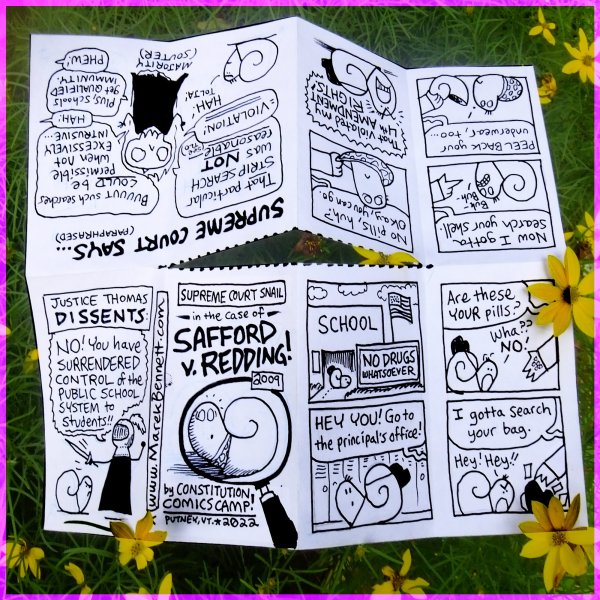 SUPREME COURT SNAIL
in the case of
SAFFORD
v. REDDING!
2009
by CONSTITUTION
COMICS CAMP!
PUTNEY, VT. * 2022
SCHOOL
NO DRUGS
WHATSOEVER
HEY YOU! Go to
the principal's office!
Are these
YOUR pills?
Wha??
NO!
I gotta search
your bag.
Hey! Hey!!
Now I gotta
search your shell.
Buh..
Buh..
PEEL BACK your
underwear, too...
No pills, huh?
Okay, you can go.
That violated my
4th AMENDMENT
RIGHTS!
SUPREME COURT SAYS...
(PARAPHRASED)
That particular
STRIP SEARCH
was NOT
reasonable
"VIOLATION!"
HAH!
TOLTJA!
MAJORITY
(SOUTER)
Buuuut such searches
COULD be
permissible
when not
EXCESSIVELY
INTRUSIVE...
HAH!
Plus, Schools
get QUALIFIED
IMMUNITY.
PHEW!
JUSTICE THOMAS
DISSENTS:
NO! You have
SURRENDERED
CONTROL of the
PUBLIC SCHOOL
SYSTEM to
students!!
www.MarekBennett.com